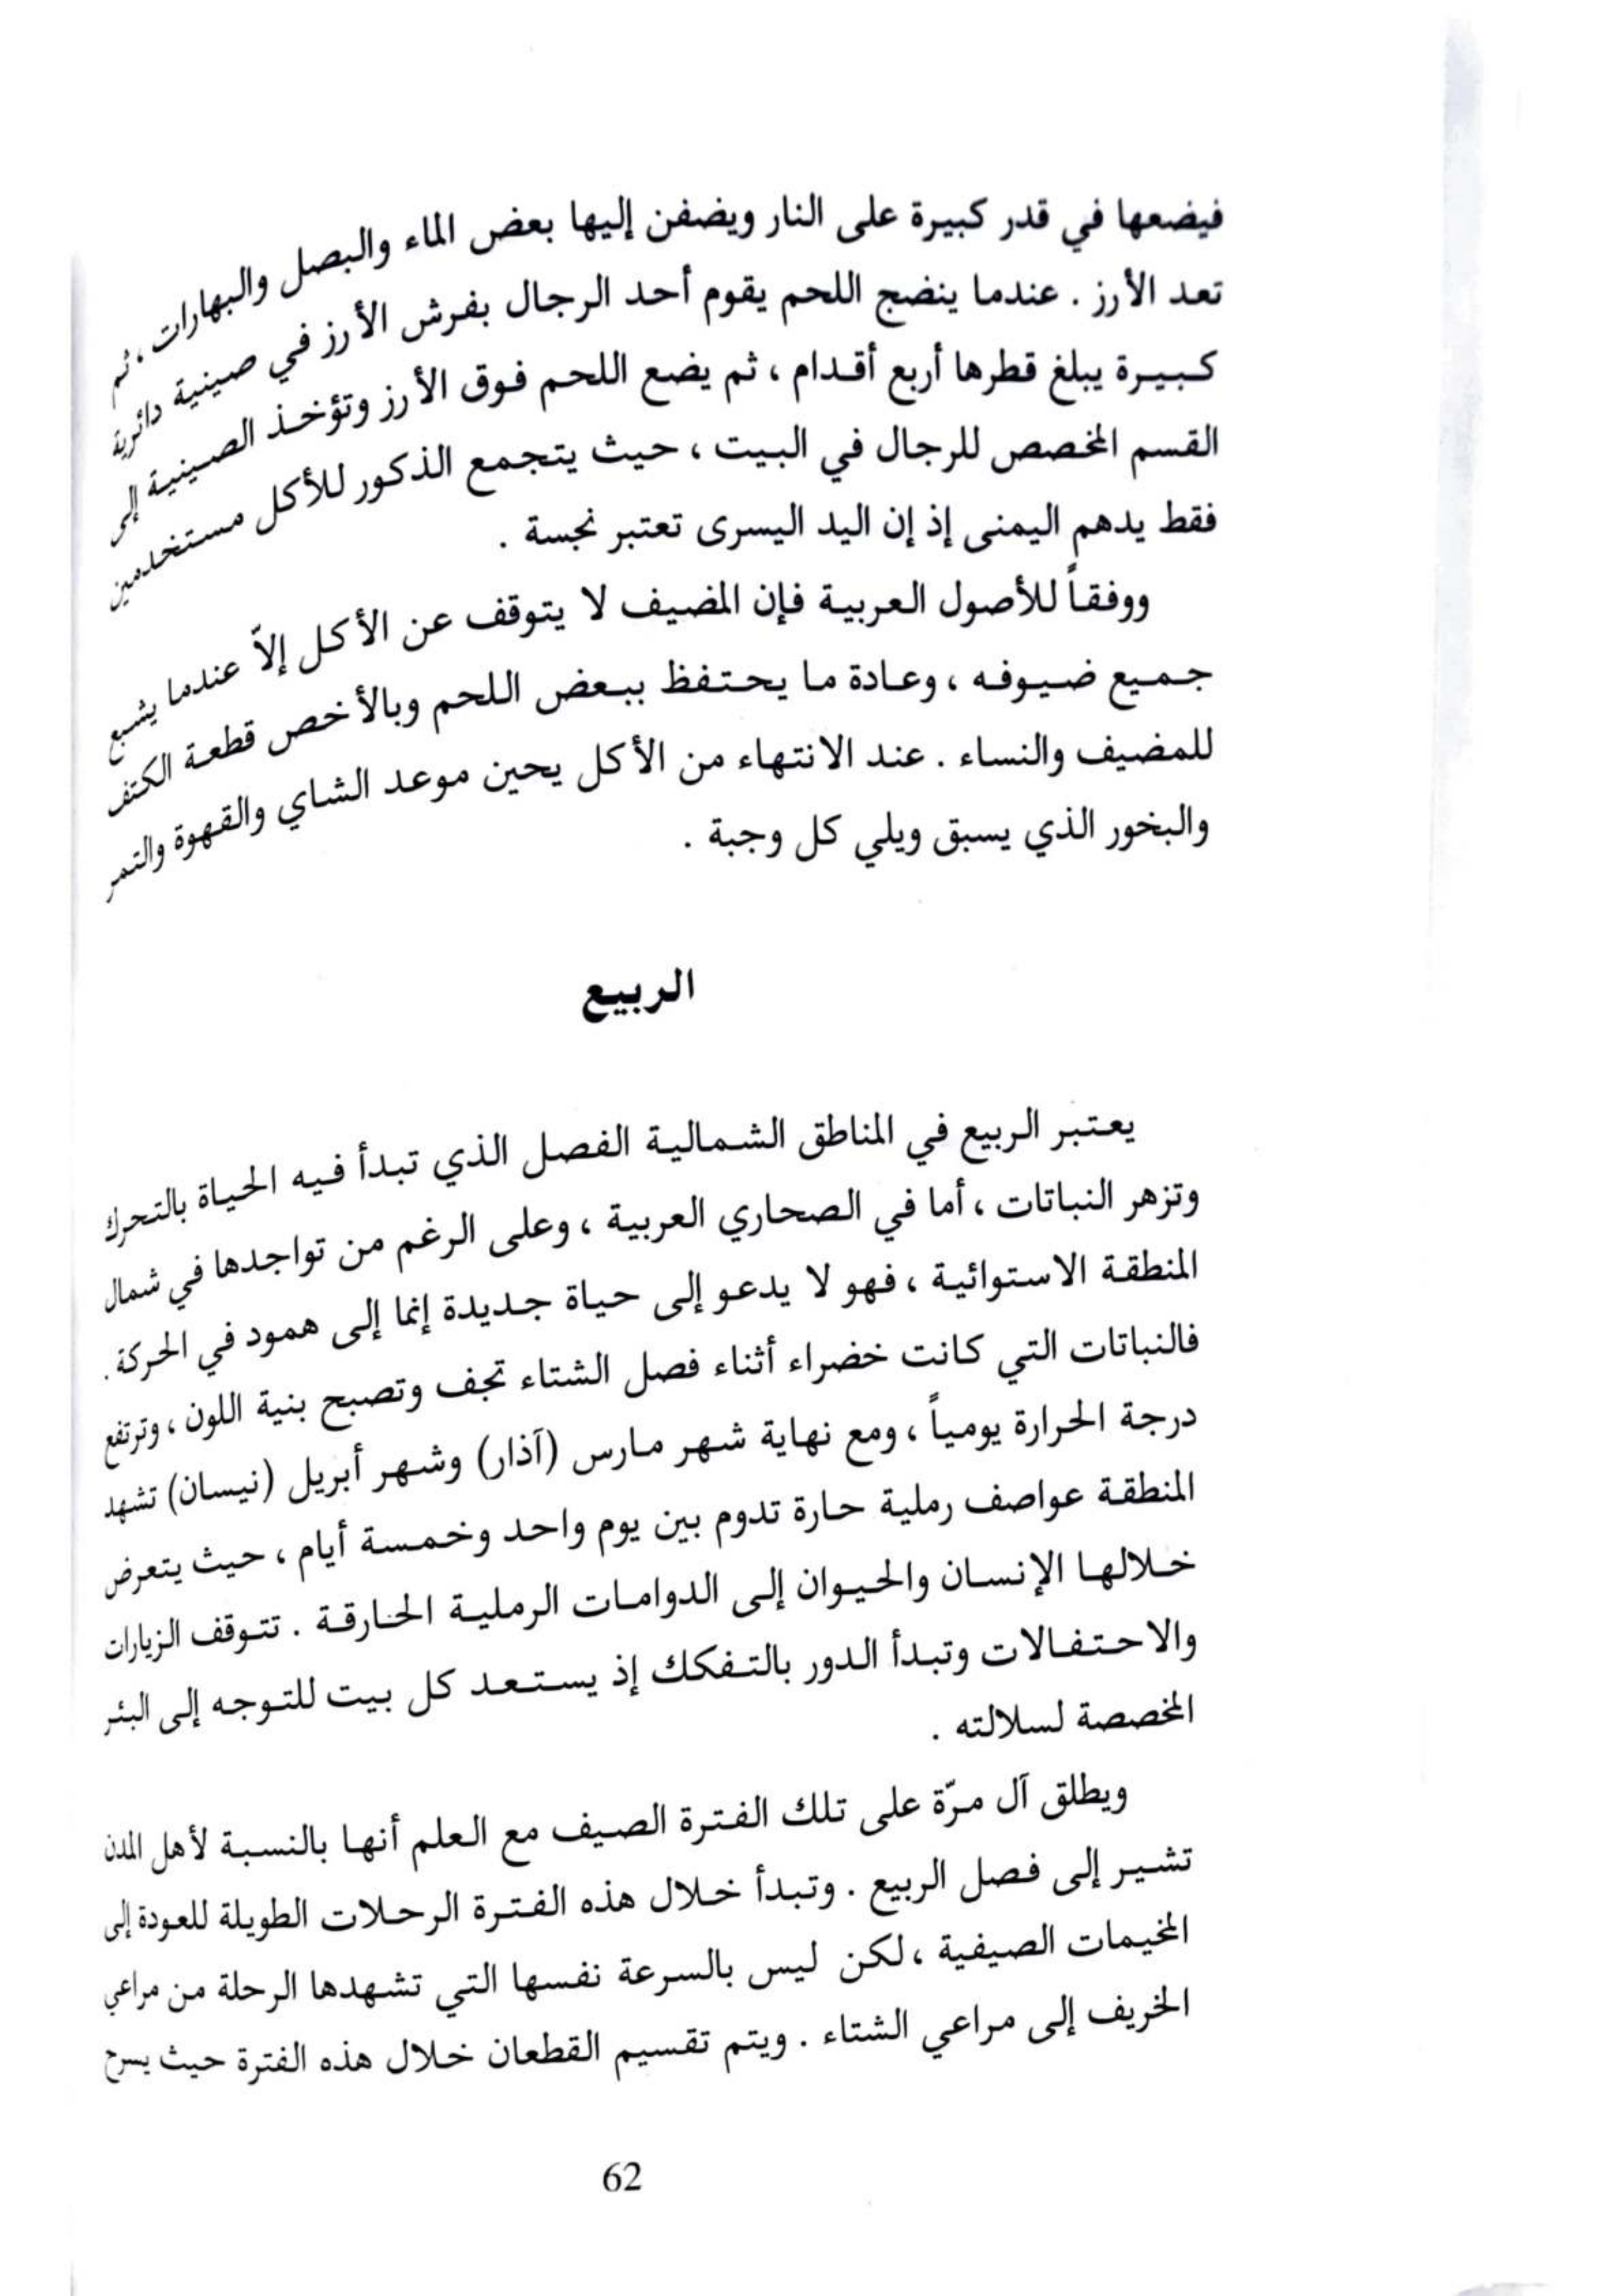 فيضعها في قدر كبيرة على النار ويضفن إليها بعض الماء والبصل والبهارات ، ثم
تعد الأرز . عندما ينضج اللحم يقوم أحد الرجال بفرش الأرز في صينية دائرية
كبيرة يبلغ قطرها أربع أقدام ، ثم يضع اللحم فوق الأرز وتؤخذ الصينية إلى
القسم المخصص للرجال في البيت ، حيث يتجمع الذكور للأكل مستخدمين
فقط يدهم اليمنى إذ إن اليد اليسرى تعتبر نجسة .
ووفقاً للأصول العربية فإن المضيف لا يتوقف عن الأكل إلاّ عندما يشبع
جميع ضيوفه ، وعادة ما يحتفظ ببعض اللحم وبالأخص قطعة الكتف
للمضيف والنساء . عند الانتهاء من الأكل يحين موعد الشاي والقهوة والتمر
والبخور الذي يسبق ويلي كل وجبة .
الربيع
يعتبر الربيع في المناطق الشمالية الفصل الذي تبدأ فيه الحياة بالتحرك
وتزهر النباتات ، أما في الصحاري العربية ، وعلى الرغم من تواجدها في شمال
المنطقة الاستوائية ، فهو لا يدعو إلى حياة جديدة إنما إلى همود في الحركة .
فالنباتات التي كانت خضراء أثناء فصل الشتاء تجف وتصبح بنية اللون ، وترتفع
درجة الحرارة يومياً ، ومع نهاية شهر مارس (آذار) وشهر أبريل (نيسان) تشهد
المنطقة عواصف رملية حارة تدوم بين يوم واحد وخمسة أيام ، حيث يتعرض
خلالها الإنسان والحيوان إلى الدوامات الرملية الحارقة . تتوقف الزيارات
والاحتفالات وتبدأ الدور بالتفكك إذ يستعد كل بيت للتوجه إلى البئر
المخصصة لسلالته .
ويطلق آل مرّة على تلك الفترة الصيف مع العلم أنها بالنسبة لأهل المدن
تشير إلى فصل الربيع . وتبدأ خلال هذه الفترة الرحلات الطويلة للعودة إلى
المخيمات الصيفية ، لكن ليس بالسرعة نفسها التي تشهدها الرحلة من مراعي
الخريف إلى مراعي الشتاء . ويتم تقسيم القطعان خلال هذه الفترة حيث يسرح
62